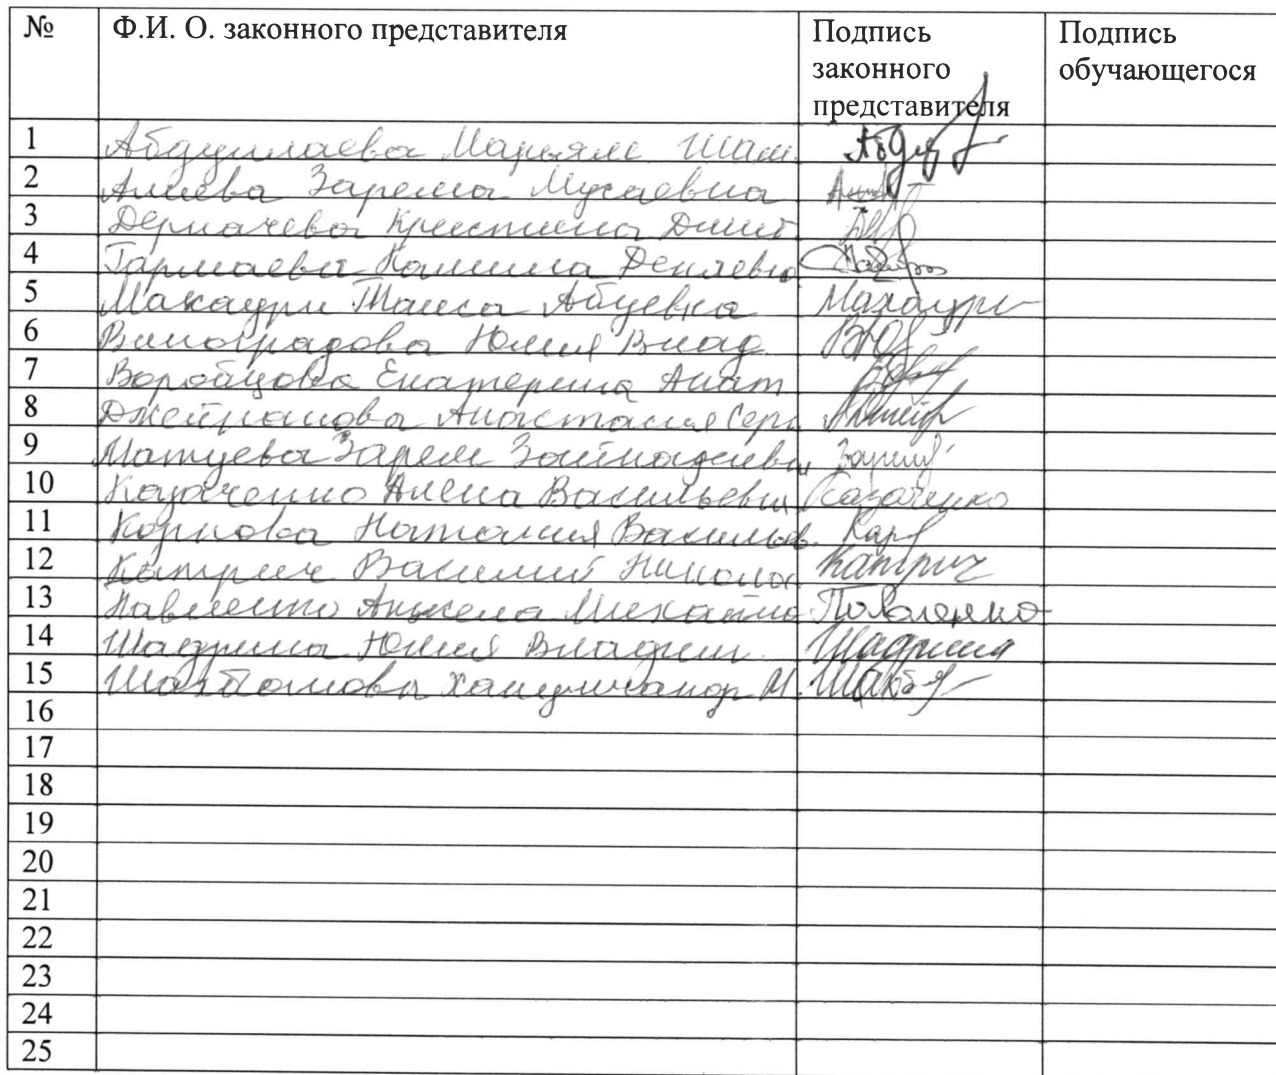 № Ф.И. О. законного представителя Подпись законного представителя Подпись обучающегося
1 Абдуллаева Марьям Шам.
2 Алиева Зарема Мусаевна
3 Дерпачева Кристина Дмит
4 Гармаева Галина
5 Махаури Таиса Абуевна Махаури
6 Виноградова Юлия Влад
7 Воробцова Екатерина Анат
8 Анастасия Серг
9 Матуева Зарем
10 Казаченко Алена Васильевна Казаченко
11 Корнова Наталия Васильев.
12 Катрич Василий Никола Катрич
13 Павленко Анжела Михайло Павленко
14 Шадрина Юлия Владим. Шадрина
15 М.
16
17
18
19
20
21
22
23
24
25